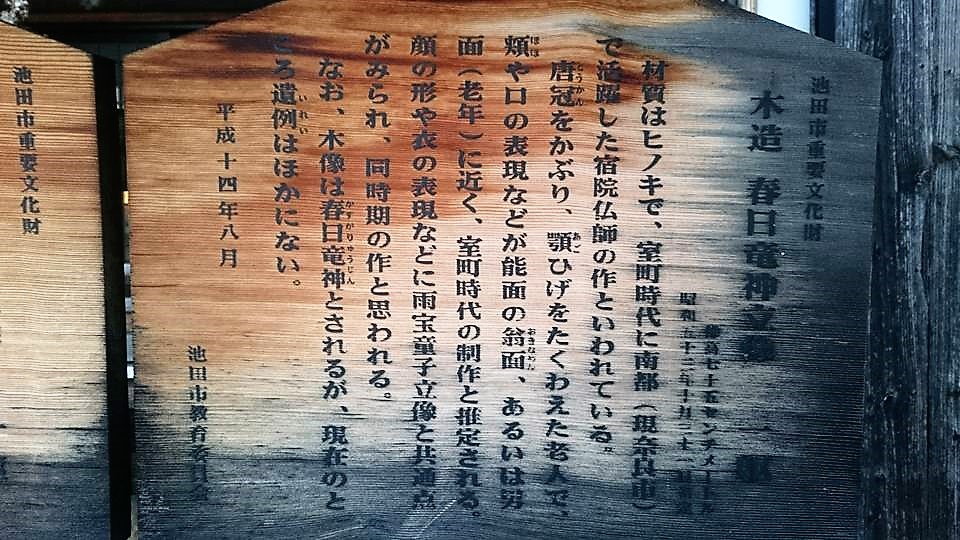 池田市重要文化財
木造 春日竜神立像 一軀
像高七十五センチメートル
昭和五十二年十月三十一日
材質はヒノキで、室町時代に南都（現奈良市）
で活躍した宿院仏師の作といわれている。
唐冠をかぶり、顎ひげをたくわえた老人で、
頬や口の表現などが能面の翁面、あるいは男
面（老年）に近く、室町時代の制作と推定される。
顔の形や衣の表現などに雨宝童子立像と共通点
がみられ、同時期の作と思われる。
なお、木像は春日竜神とされるが、現在のと
ころ遺例はほかにない。
平成十四年八月
池田市教育委員会
池田市重要文化財